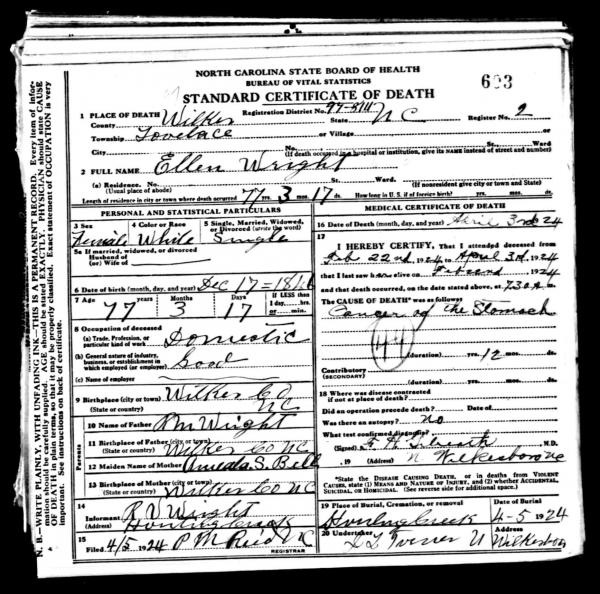 NORTH CAROLINA STATE BOARD OF HEALTH
BUREAU OF VITAL STATISTICS
603
STANDARD CERTIFICATE OF DEATH
1 PLACE OF DEATH Registration District No. Register No. 2
County Wilkes State NC
Township Lovelace or Village or
City No. St. Ward
(If death occurred in a hospital or institution, give its NAME instead of street and number)
2 FULL NAME Ellen Wright
(a) Residence. No. St. Ward.
(Usual place of abode) (If nonresident give city or town and State)
Length of residence in city or town where death occurred 77 yrs. 3 mos. 17 ds. How long in U. S., if of foreign birth? yrs. mos. ds.
PERSONAL AND STATISTICAL PARTICULARS
3 Sex 4 Color or Race 5 Single, Married, Widowed, or Divorced (write the word)
Female White Single
5a If married, widowed, or divorced
Husband of
(or) Wife of
6 Date of birth (month, day, and year) Dec 17 = 1846
7 Age Years Months Days If LESS than
77 3 17 1 day, hrs.
or min.
8 Occupation of deceased
(a) Trade, Profession, or particular kind of work Domestic
(b) General nature of industry, business, or establishment in which employed (or employer) Good
(c) Name of employer
9 Birthplace (city or town) Wilkes Co
(State or country) NC
Parents
10 Name of Father P M Wright
11 Birthplace of Father (city or town)
(State or country) Wilkes Co NC
12 Maiden Name of Mother S. Bell
13 Birthplace of Mother (city or town)
(State or country) Wilkes Co NC
14
Informant R V Wright
(Address) Hunting Creek
15
Filed 4/5 1924 P M Reid NC
REGISTRAR
MEDICAL CERTIFICATE OF DEATH
16 Date of Death (month, day, and year) April 3rd 24
17
I HEREBY CERTIFY, That I attended deceased from
Feb 22nd, 1924, to April 3rd, 1924
that I last saw h alive on 1924
and that death occurred, on the date stated above, at 730 A m.
The CAUSE OF DEATH* was as follows:
Cancer of the Stomach
44
(duration) yrs. 12 mos. ds.
Contributory
(SECONDARY)
(duration) yrs. mos. ds.
18 Where was disease contracted
if not at place of death?
Did an operation precede death? Date of
Was there an autopsy? no
What test confirmed diagnosis?
(Signed) M.D.
, 19 (Address) N Wilkesboro NC
*State the DISEASE CAUSING DEATH, or in deaths from VIOLENT CAUSES, state (1) MEANS AND NATURE OF INJURY, and (2) whether ACCIDENTAL, SUICIDAL, or HOMICIDAL. (See reverse side for additional space.)
19 Place of Burial, Cremation, or removal Date of Burial
Hunting Creek 4-5 1924
20 Undertaker Address
Turner N Wilkesboro
N. B.—WRITE PLAINLY, WITH UNFADING INK—THIS IS A PERMANENT RECORD. Every item of information should be carefully supplied. AGE should be stated EXACTLY. PHYSICIAN should state CAUSE OF DEATH in plain terms, so that it may be properly classified. Exact statement of OCCUPATION is very important. See instructions on back of certificate.